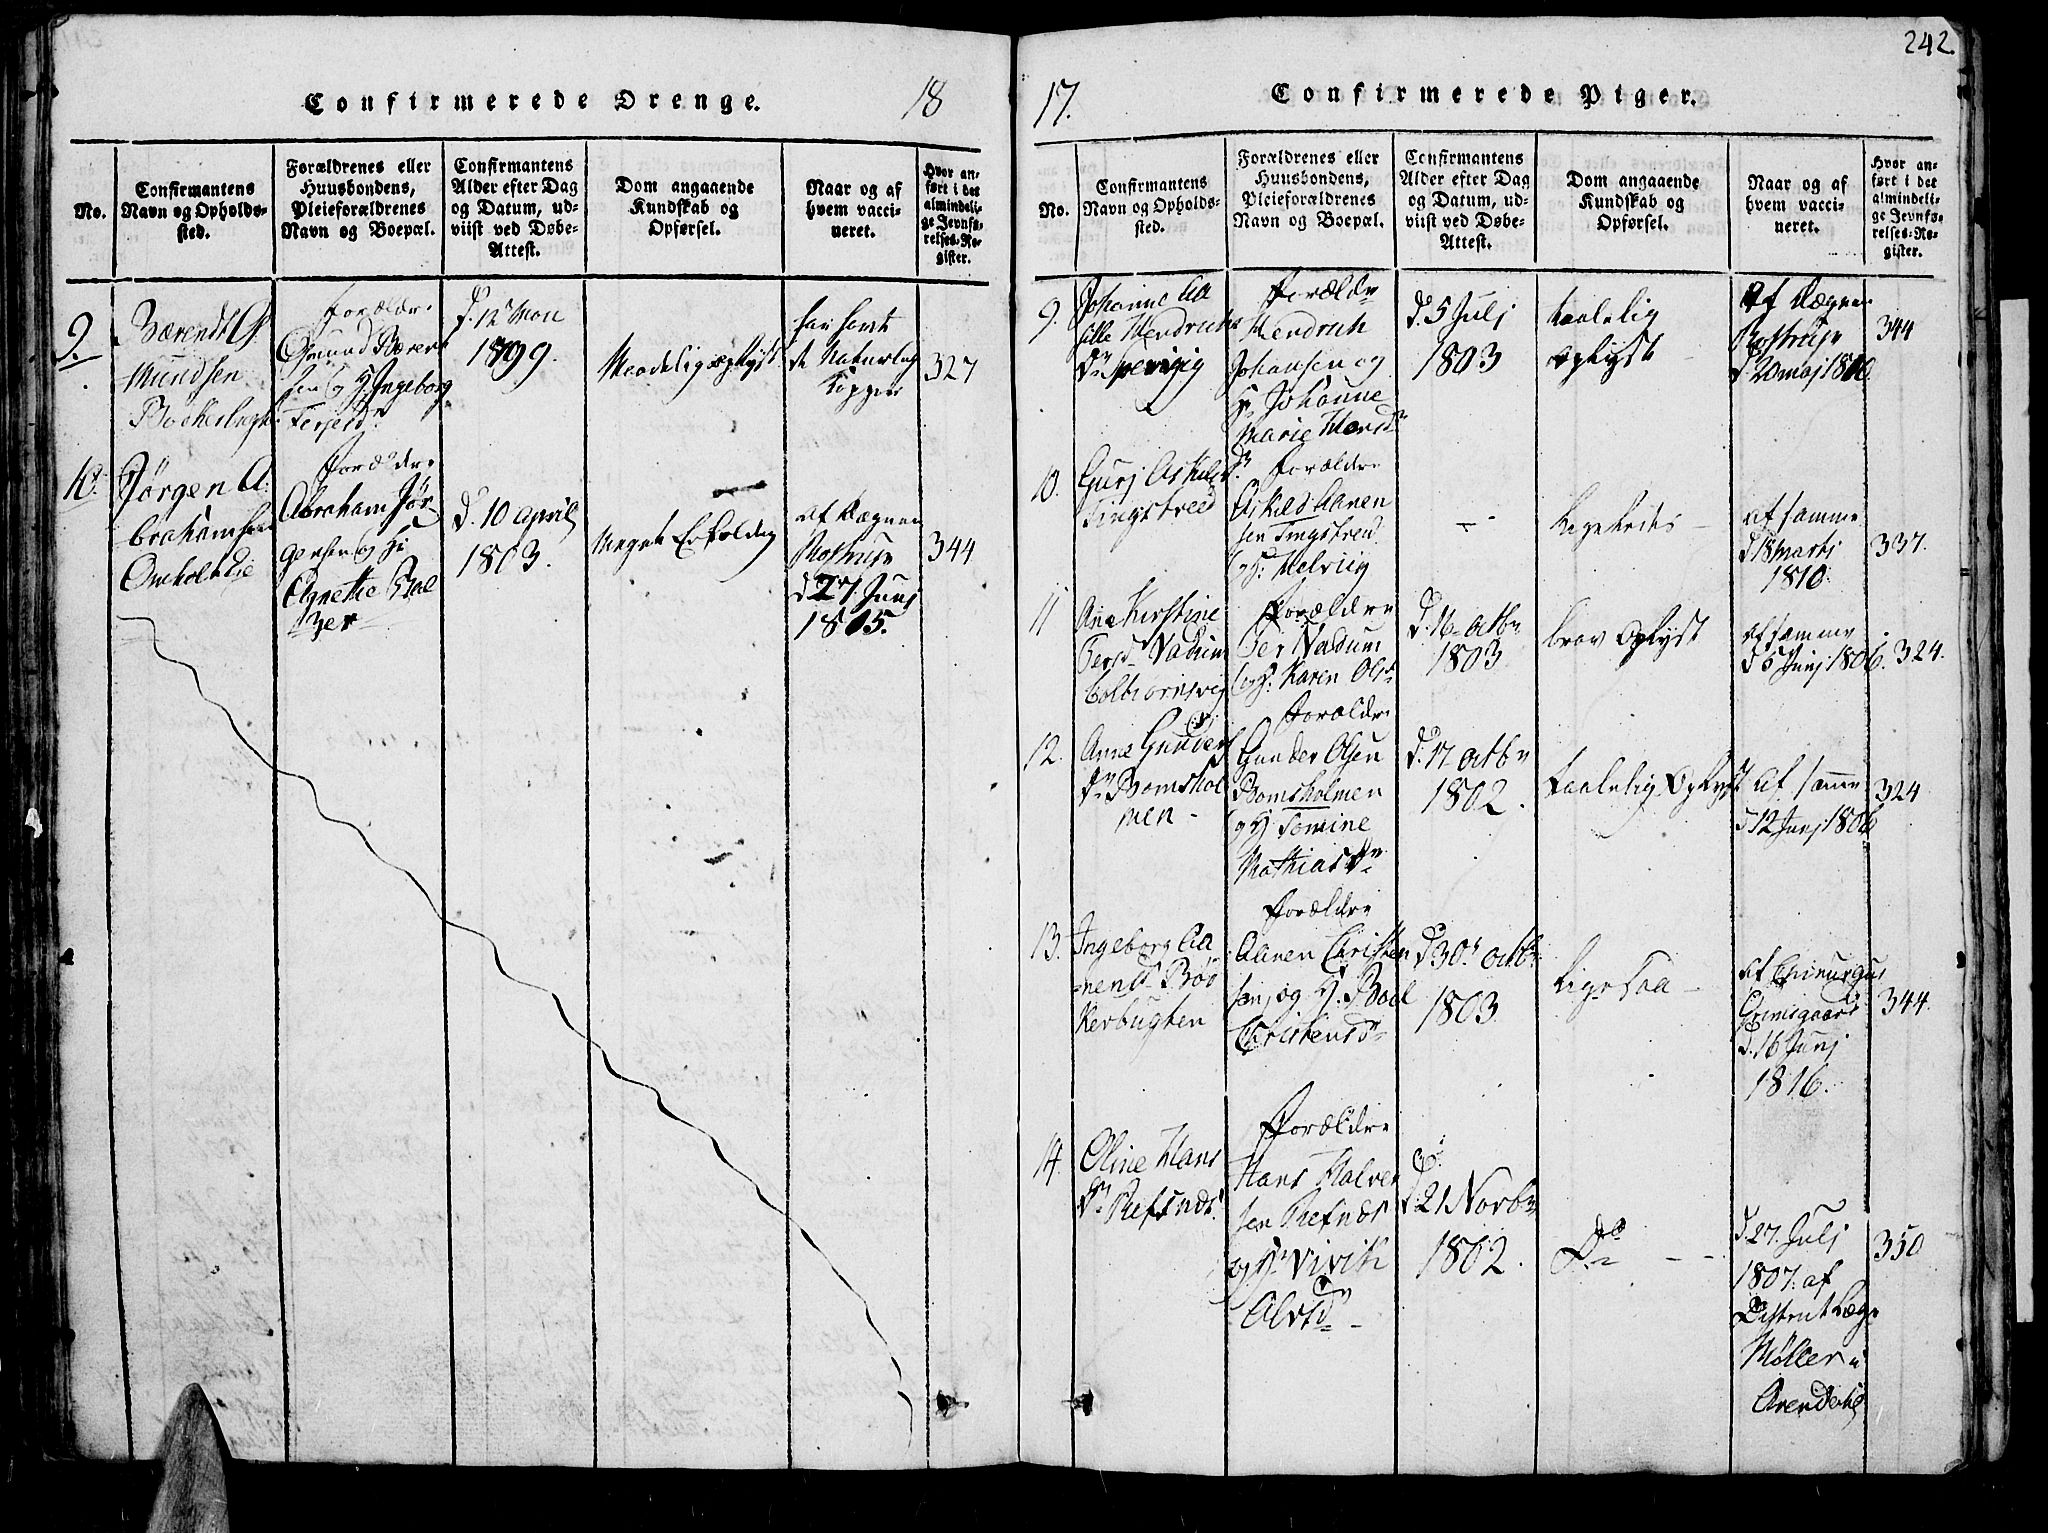 242.
Confirmerede Drenge.
18
No.
Confirmantens
Navn og Opholds-
sted.
Forældrenes eller
Huusbondens,
Pleieforældrenes
Navn og Boepæl.
Confirmantens
Alder efter Dag
og Datum, ud-
viist ved Døbe-
Attest.
Dom angaaende
Kundskab og
Opførsel.
Naar og af
hvem vacci-
neret.
Hvor an-
ført i det
almindeli-
ge Jevnfø-
relses-Re-
gister.
9.
Bærendt G
Mundsen
Forældre
Gmund Bærent
sen og H Ingeborg
Terjesdr
1799.
Maadelig oplyst
har havt
de Naturlig
Kopper
327
10.
Jørgen A.
brahamsen
Omholtlie
Forældre
Abraham Jør
gensen og H:
Agnethe Bal
zer
d. 10 april
1803.
Meget Enfoldig
af Degnen
Rostrup
d 27 Junj
1805.
344
17.
Confirmerede Piger.
No.
Confirmantens
Navn og Opholds-
sted.
Forældrenes eller
Huusbondens,
Pleieforældrenes
Navn og Boepæl.
Confirmantens
Alder efter Dag
og Datum, ud-
viist ved Døbe-
Attest.
Dom angaaende
Kundskab og
Opførsel.
Naar og af
hvem vacci-
neret.
Hvor an-
ført i det
almindeli-
ge Jevnfø-
relses-Re-
gister.
9.
Johanne Ca
sille Hendrichs
Dr
Forældre
Hendrich
Johansen og
H: Johanne
Marie
d. 5 Julj
1803
taalelig
oplyst
af Degnen
Rostrup
344
10.
Gurj Askilds Dr
Tingstveed
Forældre
Askild Aanen
sen Tingstved
og H: Helvig
Ligeledes
af samme
d 18 Martj
1810.
337.
11
Ane Kirstine
Persdr Nadum
Colbiørnsvig
Forældre
Per Nadum
og H: Karen Olsdr
d. 16 octbr
1803
brav Oplyst
af samme
d 5 Junj 1806.
324.
12.
Anne Gunders
Dr Bomshol
men
Forældre
Gunder Olsen
Bomsholmen
og H Tomine
Mathiasdr
d. 17 octbr
1802.
taalelig Oplyst
af samme
d 12 Junj 1806
324
13.
Ingeborg Aa
nensdr Bøe
kerbugten
Forældre
Aanen Christen
sen og H. Boel
Christensdr
d 30. octbr
1803.
Lige saa
af Chirurgus
Grimsgaard
d. 16 Junj
1816.
344.
14.
Oline Hans
Dr Refsnæs.
Forældre
Hans Halvor
sen Refsnæs
og H: Vivik
d. 21 Novbr
1802.
Do
d 27. Julj
1807. af
District Læge
Møller i
Arendahl
350